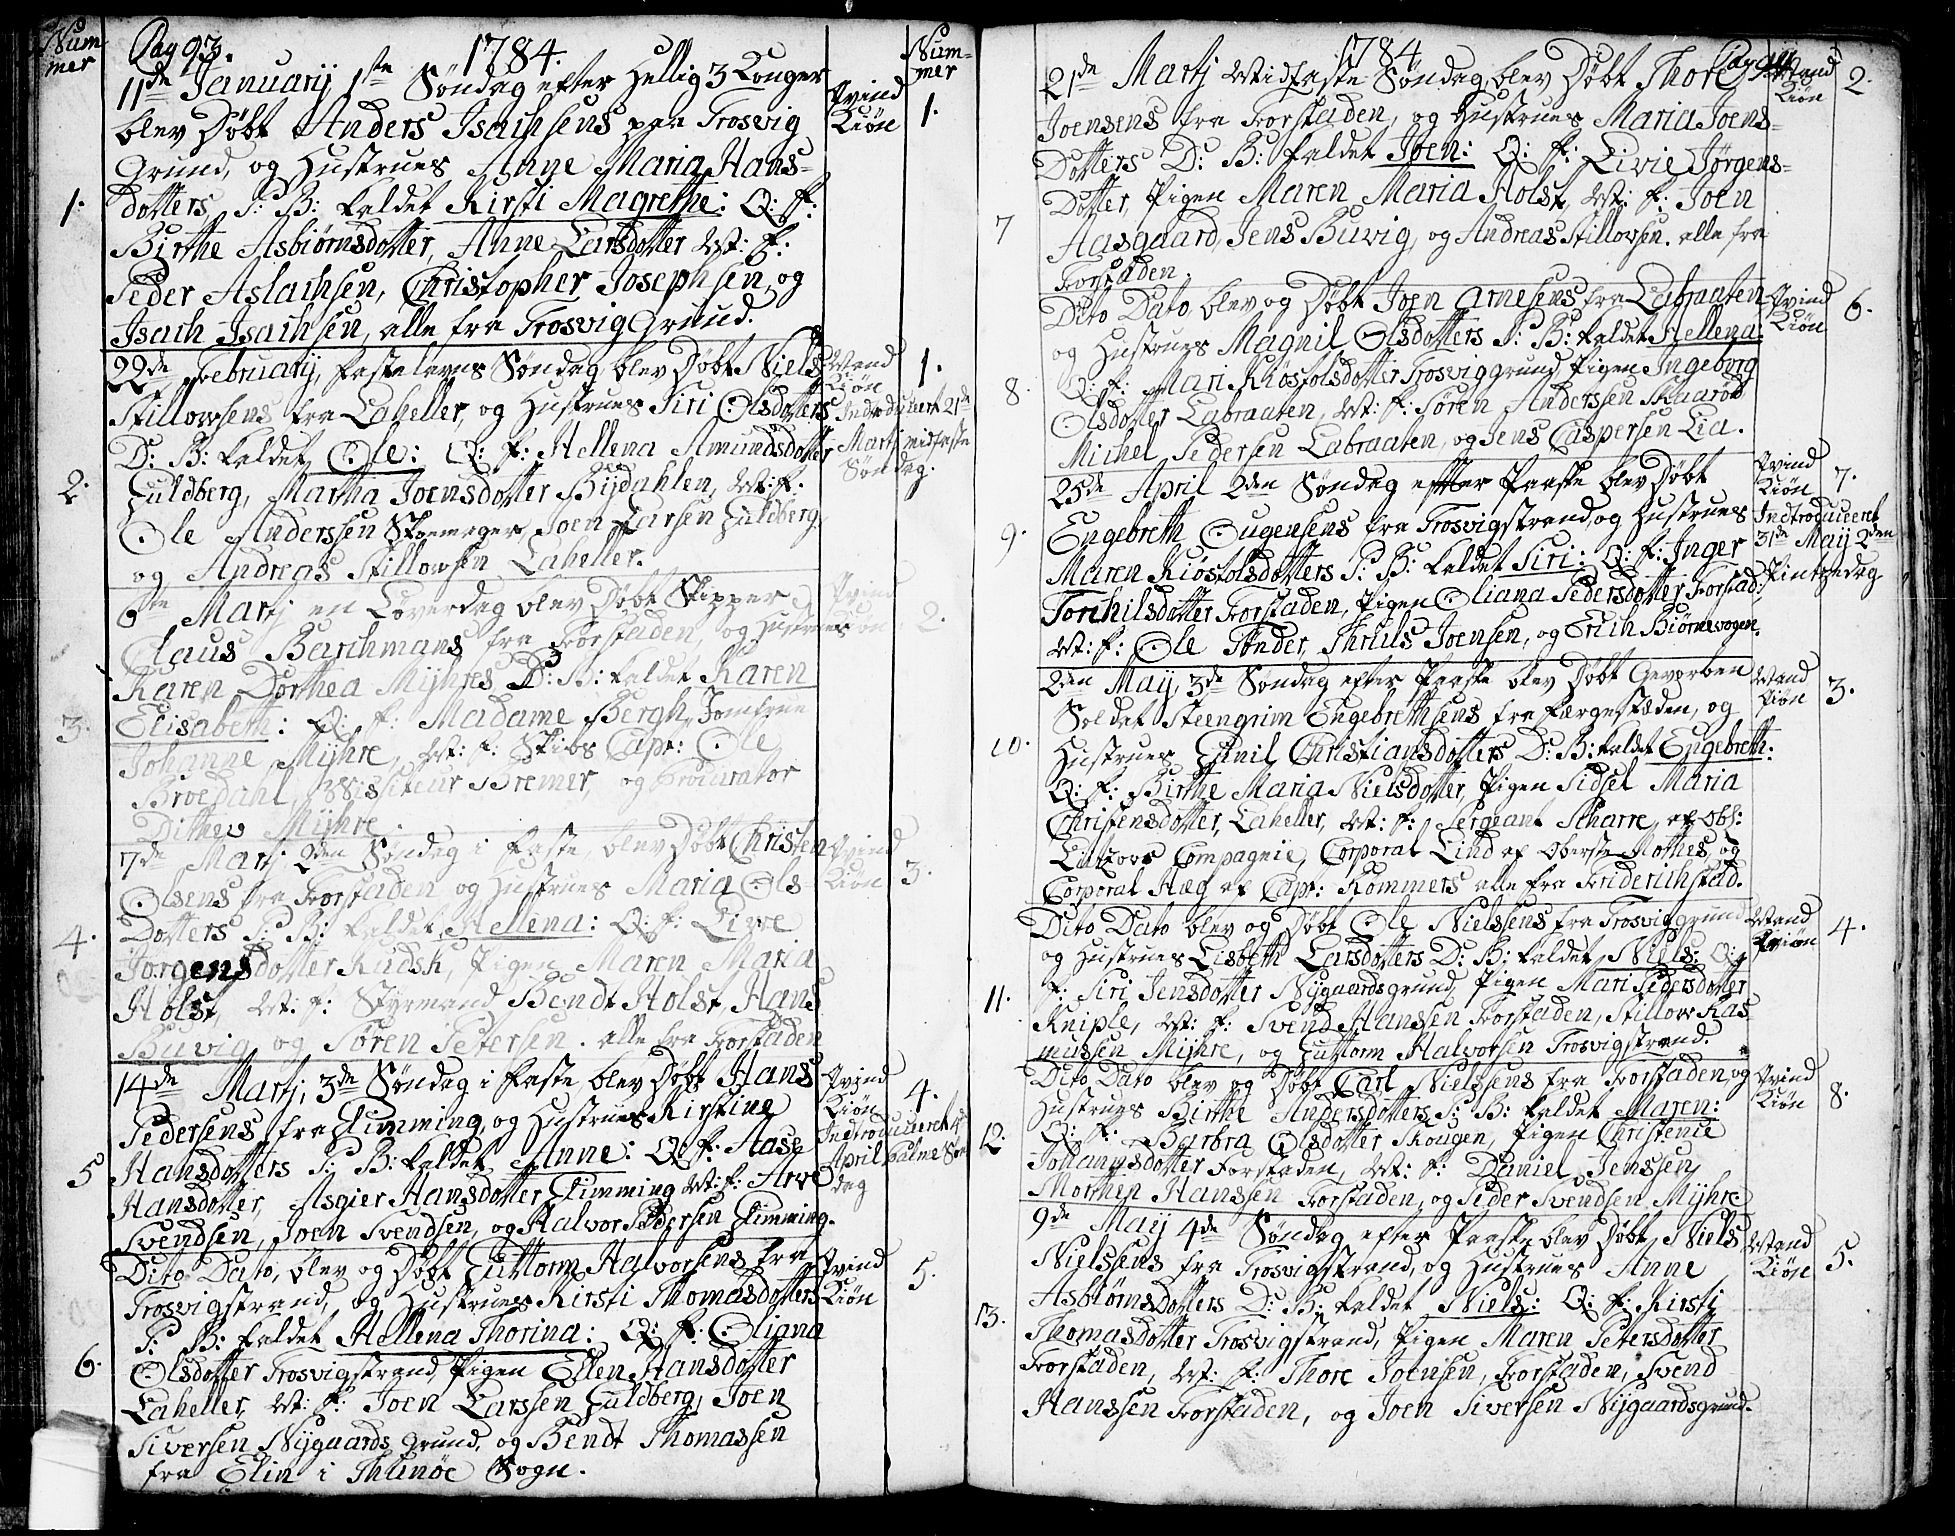 Num
mer
Pag 93.
1784.
Num-
mer
11de Januarij, 1ste Søndag efter Hellig 3 Konger
blev Døbt Anders Isachsens paa Trosvig
Grund, og Hustrues Anne Maria Hans-
dotters P: B: kaldet Kirsti Magrethe: Q: f:
Birthe Asbiørnsdotter, Anne Larsdotter M: f:
Peder Aslachsen, Christopher Josephsen, og
Isach Isachsen, alle fra Trosvig Grund.
1.
Qvind
Kiøn
1.
22de Februarij, Fastelavns Søndag blev Døbt Niels
Stillowsens fra Laheller, og Hustrues Siri Olsdotters
D: B: kaldet Ole: Q: f: Hellena Amundsdotter
Guldberg, Martha Joensdotter Bijdahlen, M: f:
Ole Anderssen Skoemager, Joen Larsen Guldberg,
og Andreas Stillowsen Laheller.
2.
Mand
Kiøn
1.
Indroducert 21de
Martj midfaste
Søndag.
6te Martj en Løverdag blev Døbt Skipper
Claus Barchmans fra Forstaden, og Hustrues
Karen Dorthea Mijhres P: B: kaldet Karen
Elisabeth: Q: f: Madame Bergh, Jomfrue
Johanne Mijhre, M: f: Skibs Capt: Ole
Broedahl, Visiteur Bremer, og Procurator
Dithev Mijhre
3.
Qvind
Kiøn
2.
7de Martj 2den Søndag i Faste, blev Døbt Christen
Olsens fra Forstaden og Hustrues Maria Ols
Dotters P: B: kaldet Hellena: Q: f: Livre
Jørgensdotter Kudsk, Pigen Maren Maria
Holst, M: f: Styrmand Bendt Holst, Hans
Buvig og Søren Petersen. alle fra Forstaden
4.
Qvind
Kiøn
3.
14de Martj, 3de Søndag i Faste blev Døbt Hans
Pedersens fra Glimming, og Hustrues Kirstine
Hansdotters P: B: kaldet Anne: Q: f: Aase
Hansdotter, Asgier Hansdotter Glimming M: f: Arve
Svendsen, Joen Svendsen, og Halvor Pedersen Glimming.
5
Qvind
Kiøn
4.
Indtroduceret 4de
April Palme Søn
dag
Dito Dato, blev og Døbt Guttorm Halvorsens fra
Trosvigstrand, og Hustrues Kirsti Thomasdotters
P: B: kaldet Hellena Thorina: Q: f: Oliana
Olsdotter Trosvigstrand, Pigen Ellen Hansdotter
Laheller, M: f: Joen Larssen Guldberg, Joen
Siversen Nijgaards grund, og Bendt Thomassen
fra Elin i Thunøe Sogn.
6.
Qvind
Kiøn
5.
1784
Pag 94
21de Martj Midfaste Søndag blev Døbt Thore
Joensens fra Forstaden, og Hustrues Maria Joens-
Dotters D: B: kaldet Joen: Q: f: Livie Jørgens-
Dotter, Pigen Maren Maria Holst, M: f: Joen
Aasgaard, Jens Buvig, og Andreas Stillovsen. alle fra
Forstaden.
7
Mand
Kiøn
2.
Dito Dato, blev og Døbt Joen Arnesens fra Labraaten
og Hustrues Magnil Olsdotters P: B: kaldet Hellena:
Q: f: Mari Kiøstolsdotter Trosviggrund, Pigen Ingeborg
Olsdotter Labraaten, M: f: Søren Anderssen Skaarød
Michel Pedersen Labraaten, og Jens Caspersen Lia.
8.
Qvind
Kiøn
6.
25de April 2den Søndag efter Paaske blev Døbt
Engebreth Eugensens fra Trosvigstrand, og Hustrues
Maren Kiøstolsdotters P: B: kaldet Siri: Q: f: Inger
Torchilsdotter Forstaden, Pigen Oliana Pedersdotter Forstad:
M: f: Ole Tønder, Thruls Joensen, og Erich Biørnevogen.
9.
Qvind
Kiøn
7.
Indtroduceret
31de Maij 2den
Pintzedag
2den Maij, 3de Søndag efter Paaske blev Døbt Geworben
Soldat Steengrim Engebrethsens fra Færgestæden, og
Hustrues Gunil Christiansdotters D: B: kaldet Engebreth:
Q: f: Birthe Maria Nielsdotter, Pigen Sidsel Maria
Christensdotter, Laheller, M: f: Sergeant Scharre, af Obl:
Lutzovs Compagnie, Corporal Lind af Oberste Mothes, og
Corporal Hæg af Capt: Rommers alle fra Friderichstad.
10.
Mand
Kiøn
3.
Dito Dato blev og Døbt Ole Nielsens fra Trosviggrund
og Hustrues Lisbeth Larsdotters D: B: kaldet Niels: Q:
f: Siri Jensdotter Nijgaardsgrund, Pigen Mari Pedersdotter
Kniple, M: f: Svend Hanssen Forstaden, Stillow Ras
mussen Mijhre, og Guttorm Halvorsen Trosvigstrand.
11.
Mand
Kiøn
4.
Dito Dato blev og Døbt Carl Nielssens fra Forstaden, og
Hustrues Birthe Andersdotters P: B: kaldet Maren:
Q: f: Barbra Olsdotter Skougen, Pigen Christenie
Johannsdotter Forstaden, M: f: Daniel Jenssen,
Morthen Hanssen Forstaden, og Peder Svendsen Mijhre
12.
Qvind
Kiøn
8.
9de Maij 4de Søndag efter Paaske blev Døbt Niels
Nielssens fra Trosvigstrand, og Hustrues Anne
Asbiørnsdotters D: B: kaldet Niels: Q: f: Kirsti
Thomasdotter Trosvigstrand, Pigen Maren Petersdotter
Forstaden, M: f: Thore Joensen, Forstaden, Svend
Hanssen Forstaden, og Joen Siversen Nijgaardsgrund.
13.
Mand
Kiøn
5.